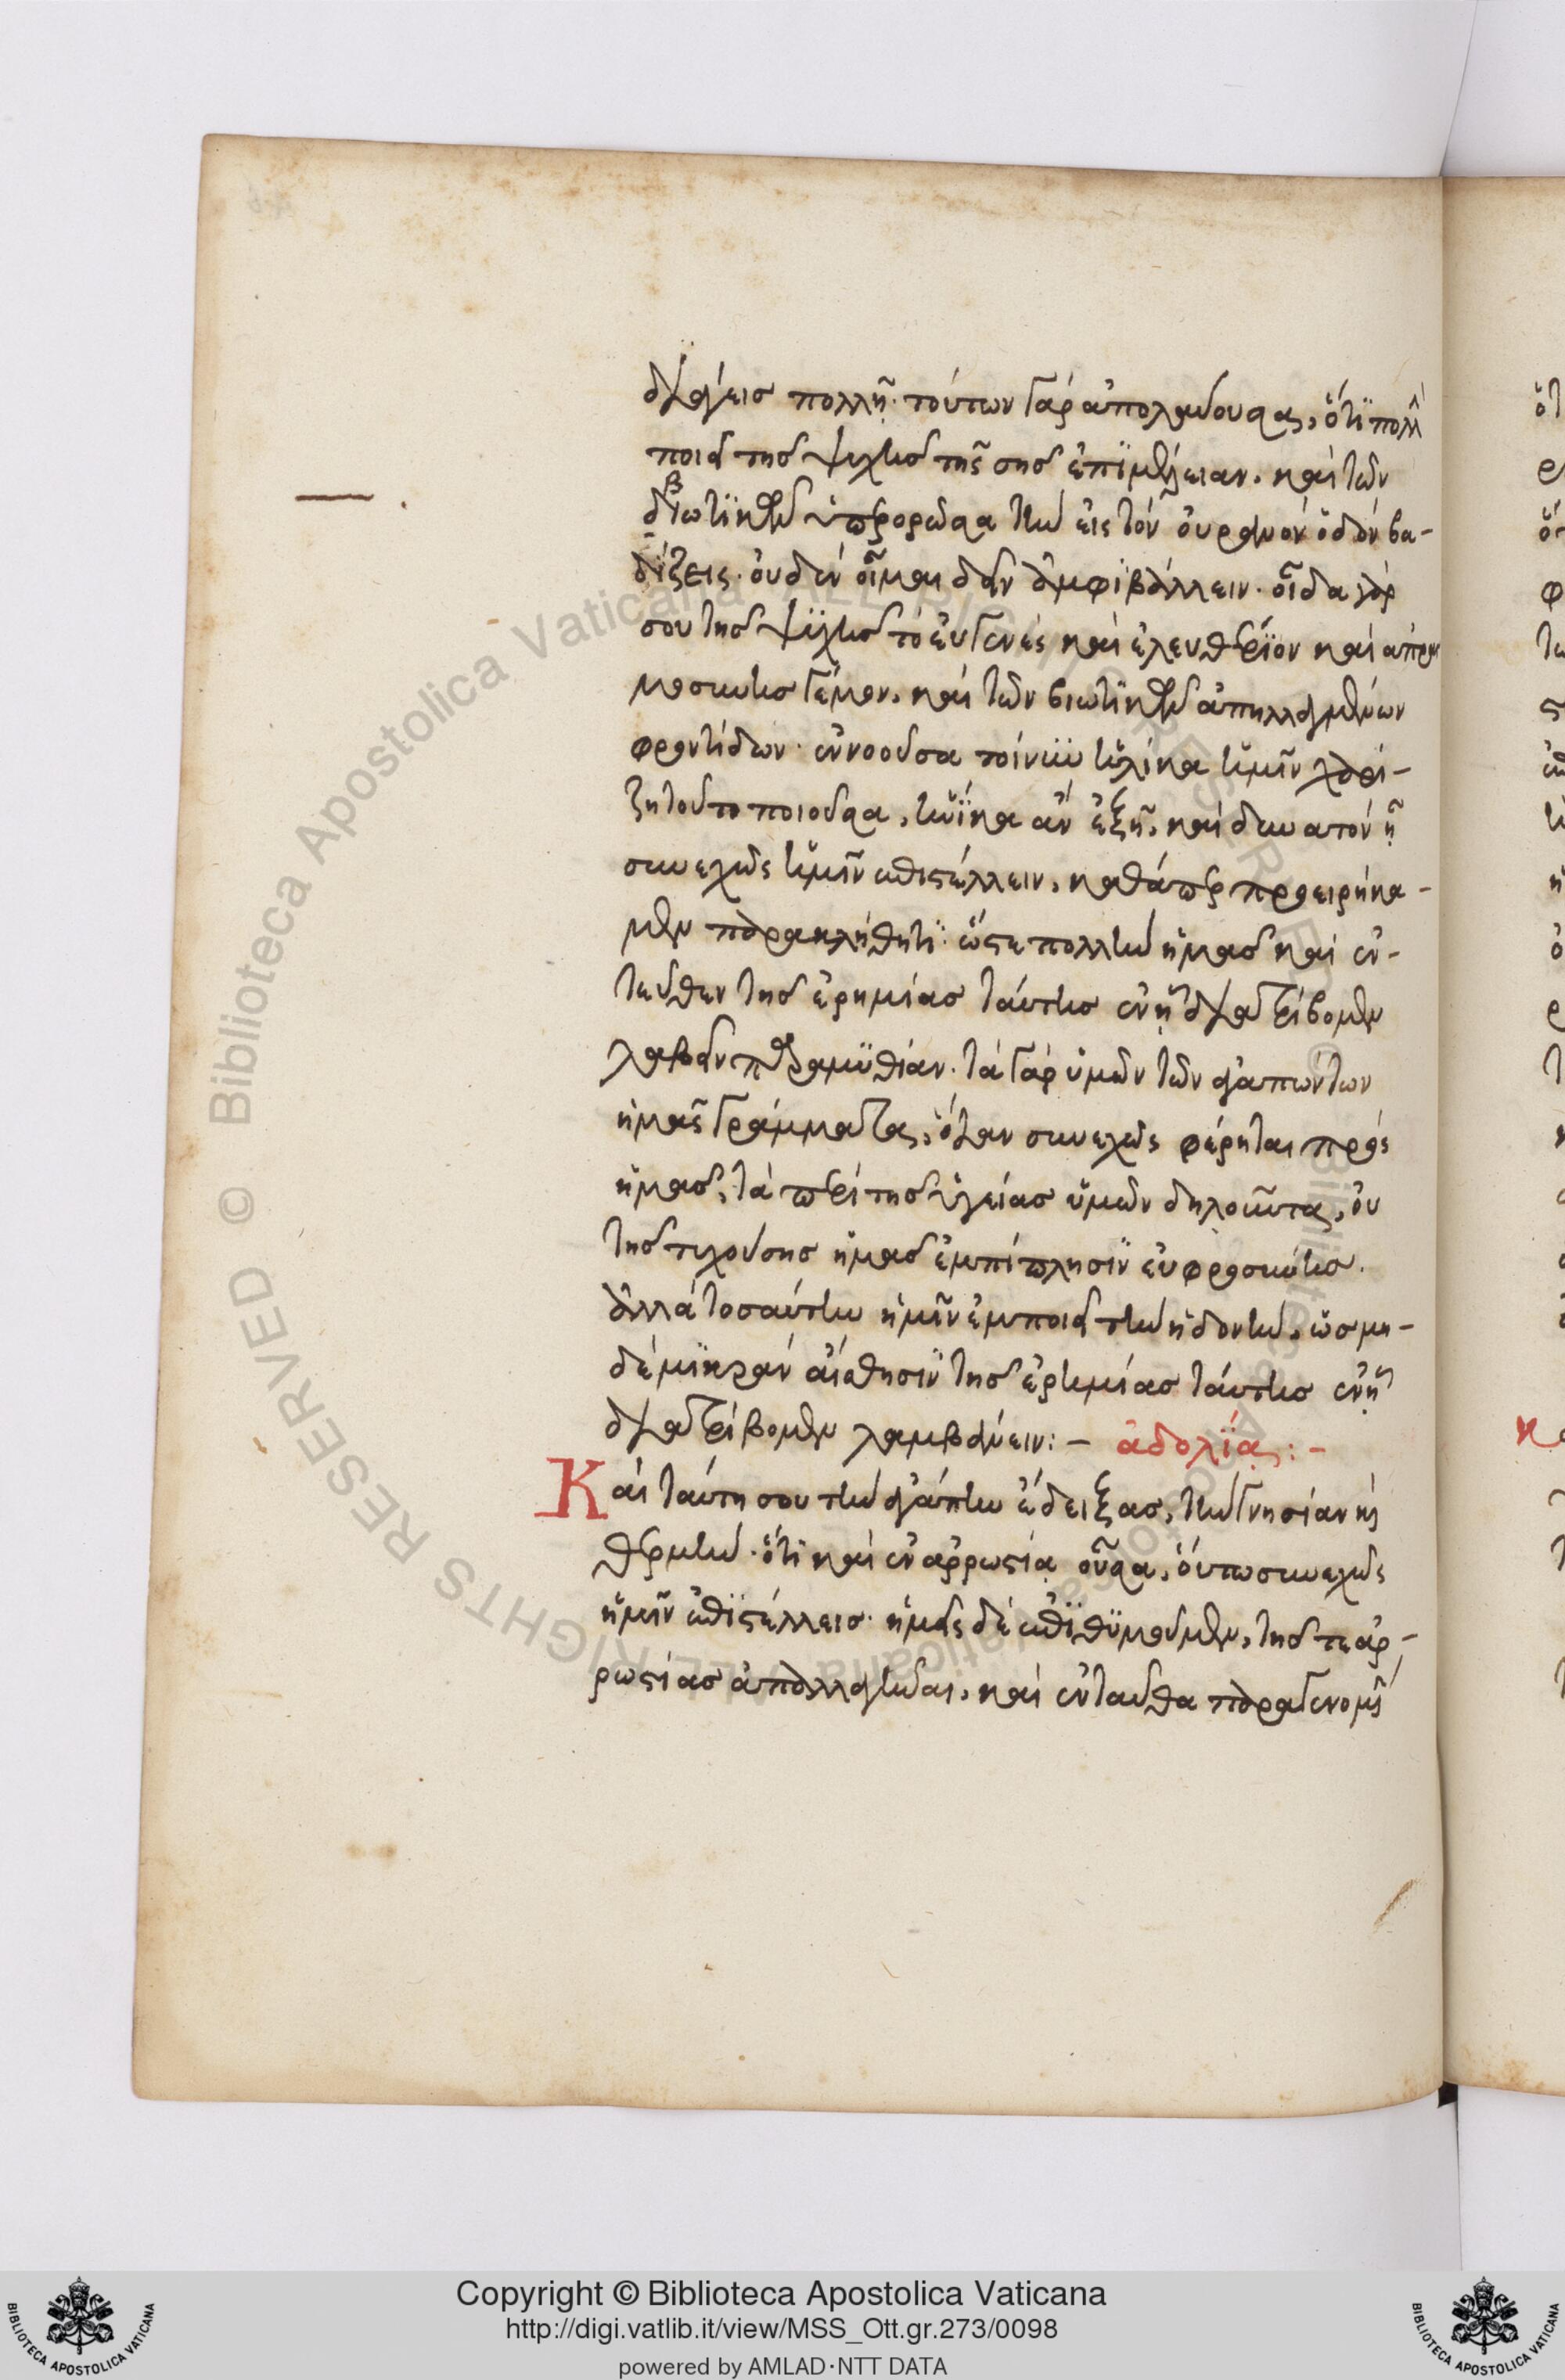 διάγεις πολλῇ. τούτων γὰρ ἀπολαύουσα, ὅτι πολλὴν
ποιεῖ τῆς ψυχῆς τῆς σῆς ἐπιμέλειαν. καὶ τῶν
βιωτικῶν ὑπερορῶσα τὴν εἰς τὸν οὐρανὸν ὁδὸν βα-
δίζεις. οὐδὲν οἶμαι δεῖν ἀμφιβάλλειν. οἶδα γάρ
σου τῆς ψυχῆς τὸ εὐγενὲς καὶ ἐλευθέριον καὶ ἀπραγ
μοσύνης γέμον. καὶ τῶν βιωτικῶν ἀπηλλαγμένων
φροντίδων. ἐννοοῦσα τοίνυν ἡλίκα ἡμῖν χαρί-
ζη τοῦτο ποιοῦσα, ἡνίκα ἂν ἐξῇ, καὶ δυνατὸν ᾖ
συνεχῶς ἡμῖν ἐπιστέλλειν, καθάπερ προειρήκα-
μεν παρακλήθητι. ὥστε πολλὴν ἡμᾶς καὶ ἐν-
τεῦθεν τῆς ἐρημίας ταύτης ἐν ᾗ διατρίβομεν
λαβεῖν παραμυθίαν. τὰ γὰρ ὑμῶν τῶν ἀγαπώντων
ἡμᾶς γράμματα, ὅταν συνεχῶς φέρηται πρὸς
ἡμᾶς, τὰ περὶ τῆς ὑγείας ὑμῶν δηλοῦντα, οὐ
τῆς τυχούσης ἡμᾶς ἐμπίπλησιν εὐφροσύνης.
ἀλλὰ τοσαύτην ἡμῖν ἐμποιεῖ τὴν ἡδονὴν, ὡς μη-
δὲ μικρὰν αἴσθησιν τῆς ἐρημίας ταύτης ἐν ᾗ
διατρίβομεν λαμβάνειν:– ἀδολίᾳ:–
Καὶ ταύτῃ σου τὴν ἀγάπην ἔδειξας, τὴν γνησίαν καὶ
θερμὴν. ὅτι καὶ ἐν ἀρρωστίᾳ οὖσα, οὕτω συνεχῶς
ἡμῖν ἐπιστέλλεις. ἡμεῖς δὲ ἐπιθυμοῦμεν, τῆς τε ἀρ-
ρωστίας ἀπαλλαγῆναι, καὶ ἐνταῦθα παραγενομένην
Copyright © Biblioteca Apostolica Vaticana
http://digi.vatlib.it/view/MSS_Ott.gr.273/0098
powered by AMLAD·NTT DATA